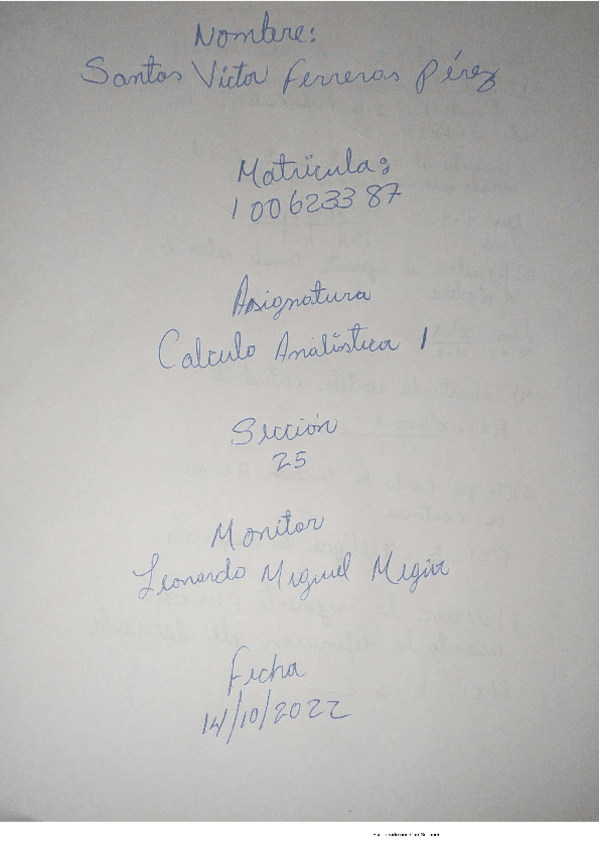 Nombre:
Santos Víctor Ferreras Pérez
Matrícula:
100623387
Asignatura
Calculo Analística 1
Sección
25
Monitor
Leonardo Miguel
Fecha
14/10/2022